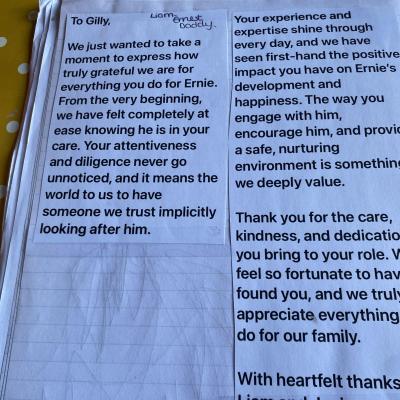 To Gilly,
Liam
Ernest
Daddy.
We just wanted to take a
moment to express how
truly grateful we are for
everything you do for Ernie.
From the very beginning,
we have felt completely at
ease knowing he is in your
care. Your attentiveness
and diligence never go
unnoticed, and it means the
world to us to have
someone we trust implicitly
looking after him.
Your experience and
expertise shine through
every day, and we have
seen first-hand the positive
impact you have on Ernie's
development and
happiness. The way you
engage with him,
encourage him, and provid
a safe, nurturing
environment is something
we deeply value.
Thank you for the care,
kindness, and dedicatio
you bring to your role. W
feel so fortunate to hav
found you, and we truly
appreciate everything
do for our family.
With heartfelt thanks